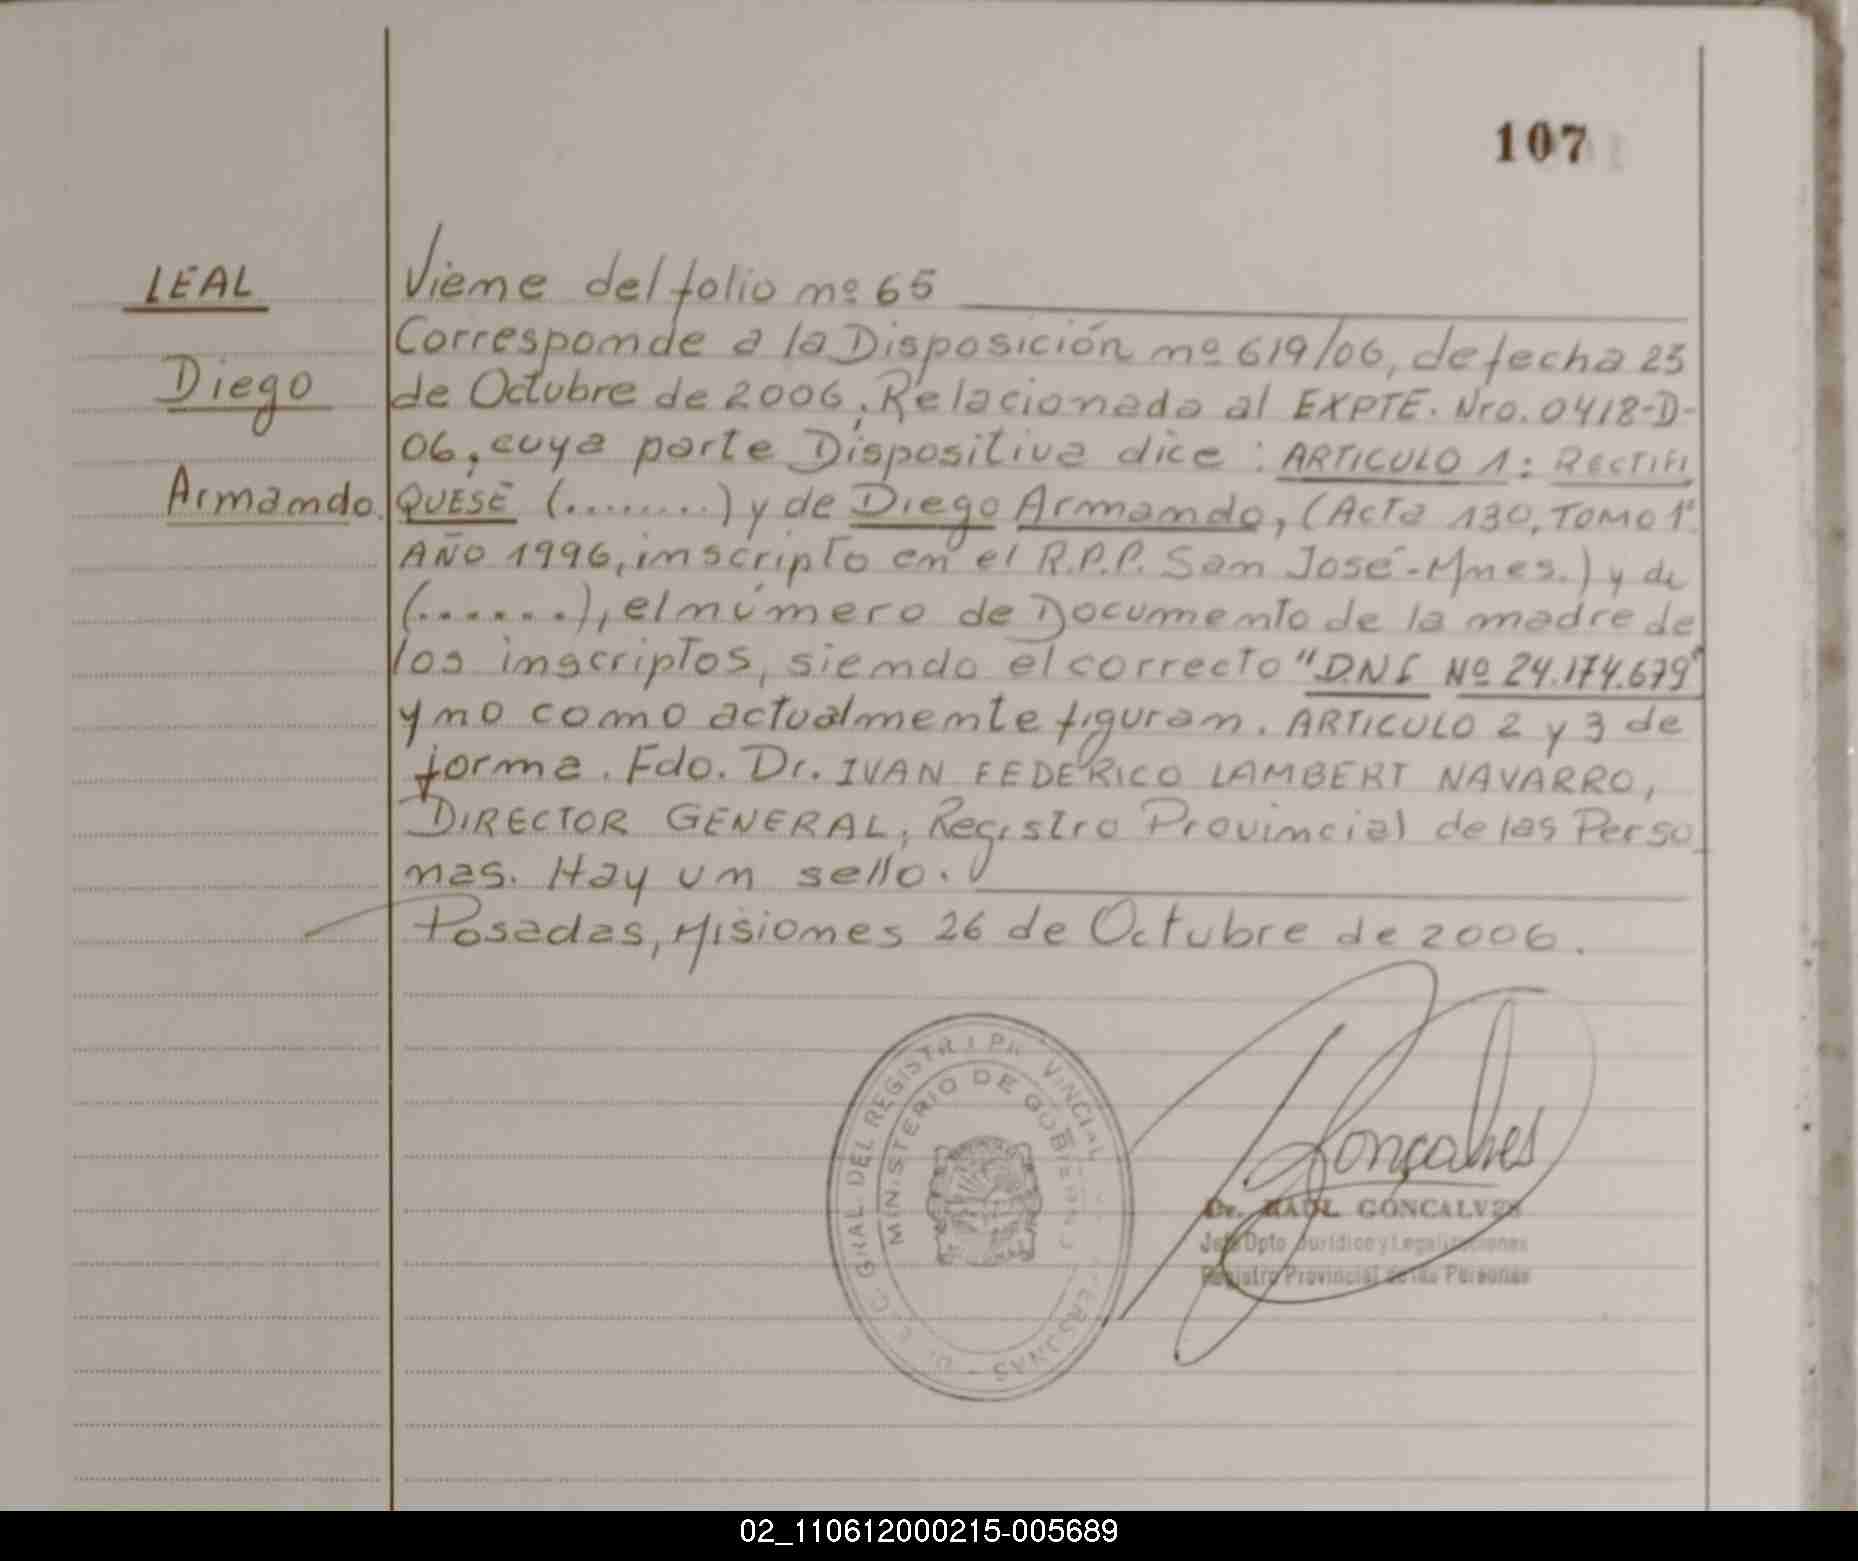 107
LEAL
Diego
Armando.
Viene del folio nº 65
Corresponde a la Disposición nº 619/06, de fecha 23
de Octubre de 2006, Relacionado al EXPTE. Nro. 0418-D-
06, cuya parte Dispositiva dice: ARTICULO 1: RECTIFI
QUESE (........) y de Diego Armando, (Acta 130, TOMO 1º
AÑO 1996, inscripto en el R.P.P. San José-Mnes.) y de
(......), el número de Documento de la madre de
los inscriptos, siendo el correcto "D.N.I Nº 24.174.679"
y no como actualmente figuran. ARTICULO 2 y 3 de
forma. Fdo. Dr. IVAN FEDERICO LAMBERT NAVARRO,
DIRECTOR GENERAL, Registro Provincial de las Perso
nas. Hay un sello.
Posadas, Misiones 26 de Octubre de 2006.
GRAL. DEL REGISTR PR VINCIAL
MINISTERIO DE GOBIERNO
Gonçalves
Dr. RAUL GONCALVES
Jefe Dpto Jurídico y Legalizaciones
Registro Provincial de las Personas
02_110612000215-005689